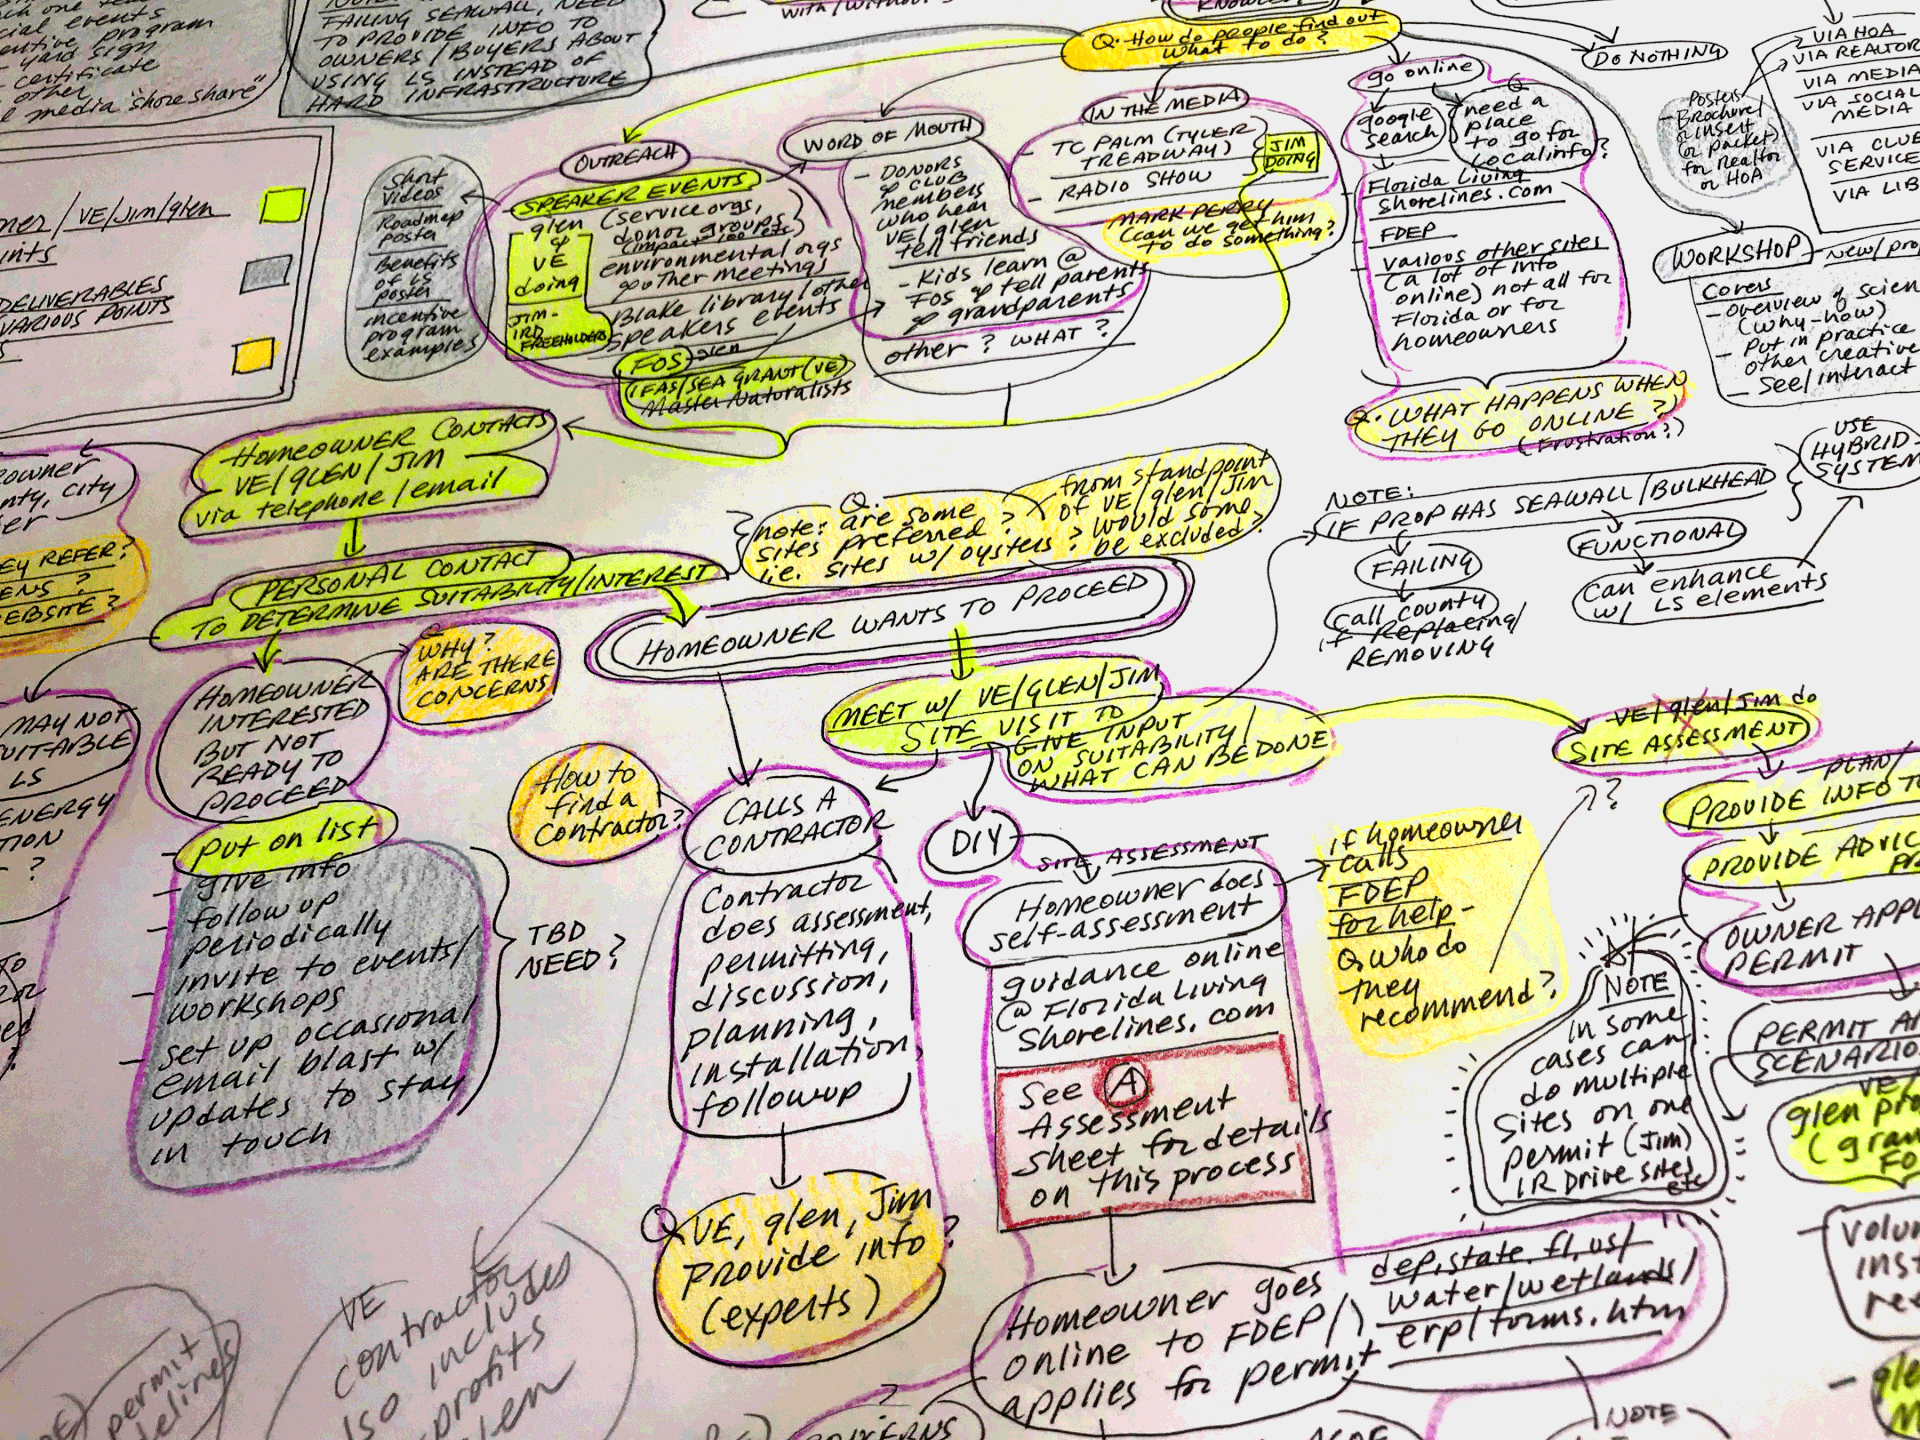 cial events
entive program
yard sign
certificate
other
media "shore share"
FAILING SEAWALL, NEED
TO PROVIDE INFO TO
OWNERS/BUYERS ABOUT
USING LS INSTEAD OF
HARD INFRASTRUCTURE
with/without
Q. How do people find out
what to do?
DO NOTHING
VIA HOA
VIA REALTOR
VIA MEDIA
VIA SOCIAL
MEDIA
VIA CLUB
SERVICE
VIA LIB
Posters
- Brochure/
or insert
(or packet)
for Realtor
or HOA
go online
google
search
Q
need a
place
to go for
Local info?
Florida Living
Shorelines.com
FDEP
various other sites
(a lot of info
online) not all for
Florida or for
homeowners
Q. WHAT HAPPENS WHEN
THEY GO ONLINE?
(Frustration?)
IN THE MEDIA
- TC PALM (TYLER
TREADWAY)
- RADIO SHOW
JIM
DOING
MARK PERRY
(can we get him
to do something?
WORD OF MOUTH
- DONORS
& CLUB
members
who hear
VE/glen
tell friends
- Kids learn @
FOS & tell parents
& grandparents
other? WHAT?
OUTREACH
SPEAKER EVENTS
glen
&
VE
doing
(service orgs,
donor groups
(impact 100 etc)
environmental orgs
other meetings
Blake library/other
speakers events
JIM-
IRD
FREEHOLDERS
FOS - glen
IFAS/SEA GRANT (VE)
Master Naturalists
Short
videos
Roadmap
poster
Benefits
of LS
poster
incentive
program
examples
ner/VE/Jim/glen
ints
DELIVERABLES
VARIOUS POINTS
WORKSHOP
Covers
- Overview of scien
(why-how)
- Put in practice
other creative
- See/interact
HOMEOWNER CONTACTS
VE/GLEN/JIM
via telephone/email
PERSONAL CONTACT
TO DETERMINE SUITABILITY/INTEREST
owner
nty, city
er
EY REFER?
ENS?
EBSITE?
Q.
note: are some
sites preferred?
i.e. sites w/ oysters?
from standpoint
of VE/glen/Jim
would some
be excluded?
NOTE:
IF PROP HAS SEAWALL/BULKHEAD
USE
HYBRID
SYSTEM
FAILING
Call county
if Replacing/
REMOVING
FUNCTIONAL
Can enhance
w/ LS elements
HOMEOWNER WANTS TO PROCEED
Q
WHY?
ARE THERE
CONCERNS
HOMEOWNER
INTERESTED
BUT NOT
READY TO
PROCEED
- put on list
- give info
- follow up
periodically
- invite to events/
workshops
- set up occasional
email blast w/
updates to stay
in touch
TBD
NEED?
MAY NOT
SUITABLE
LS
ENERGY
TION
?
MEET w/ VE/GLEN/JIM
SITE VISIT TO
GIVE INPUT
ON SUITABILITY/
WHAT CAN BE DONE
VE/glen/Jim do
SITE ASSESSMENT
PLAN/
PROVIDE INFO TO
PROVIDE ADVIC
OWNER APPL
PERMIT
How to
find a
Contractor?
CALLS A
CONTRACTOR
Contractor
does assessment,
permitting,
discussion,
planning,
installation,
followup
Q VE, glen, Jim
Provide info?
(experts)
DIY
SITE ASSESSMENT
Homeowner does
self-assessment
guidance online
@ Florida Living
Shorelines.com
See A
Assessment
sheet for details
on this process
if homeowner
calls
FDEP
for help-
Q. who do
they
recommend?
?
NOTE
In some
cases can
do multiple
Sites on one
permit (Jim)
IR Drive sites
etc
PERMIT AP
SCENARIO
VE/
glen pro
(gran
FO
volun
inst
Homeowner goes
online to FDEP/
applies for permit
dep.state.fl.us/
water/wetlands/
erp/forms.htm
VE
contractor
also includes
profits
permit
NOTE